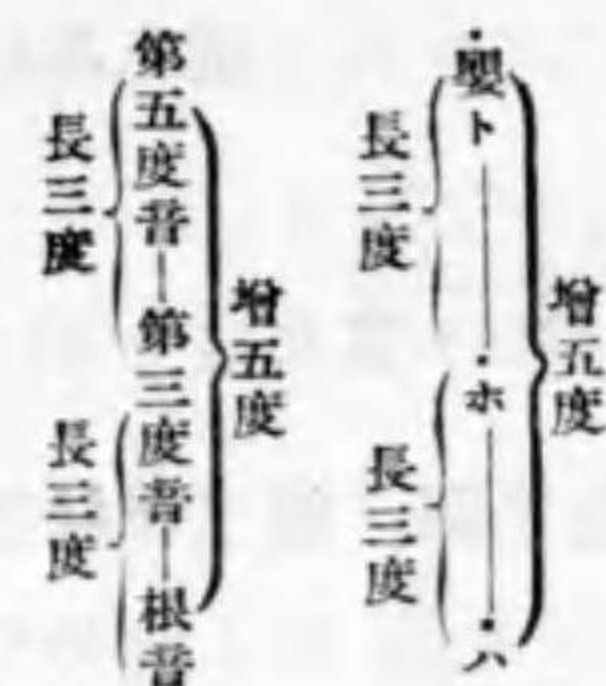 增五度
・嬰ト—・ホ—・ハ
長三度
長三度
增五度
第五度音—第三度音—根音
長三度
長三度